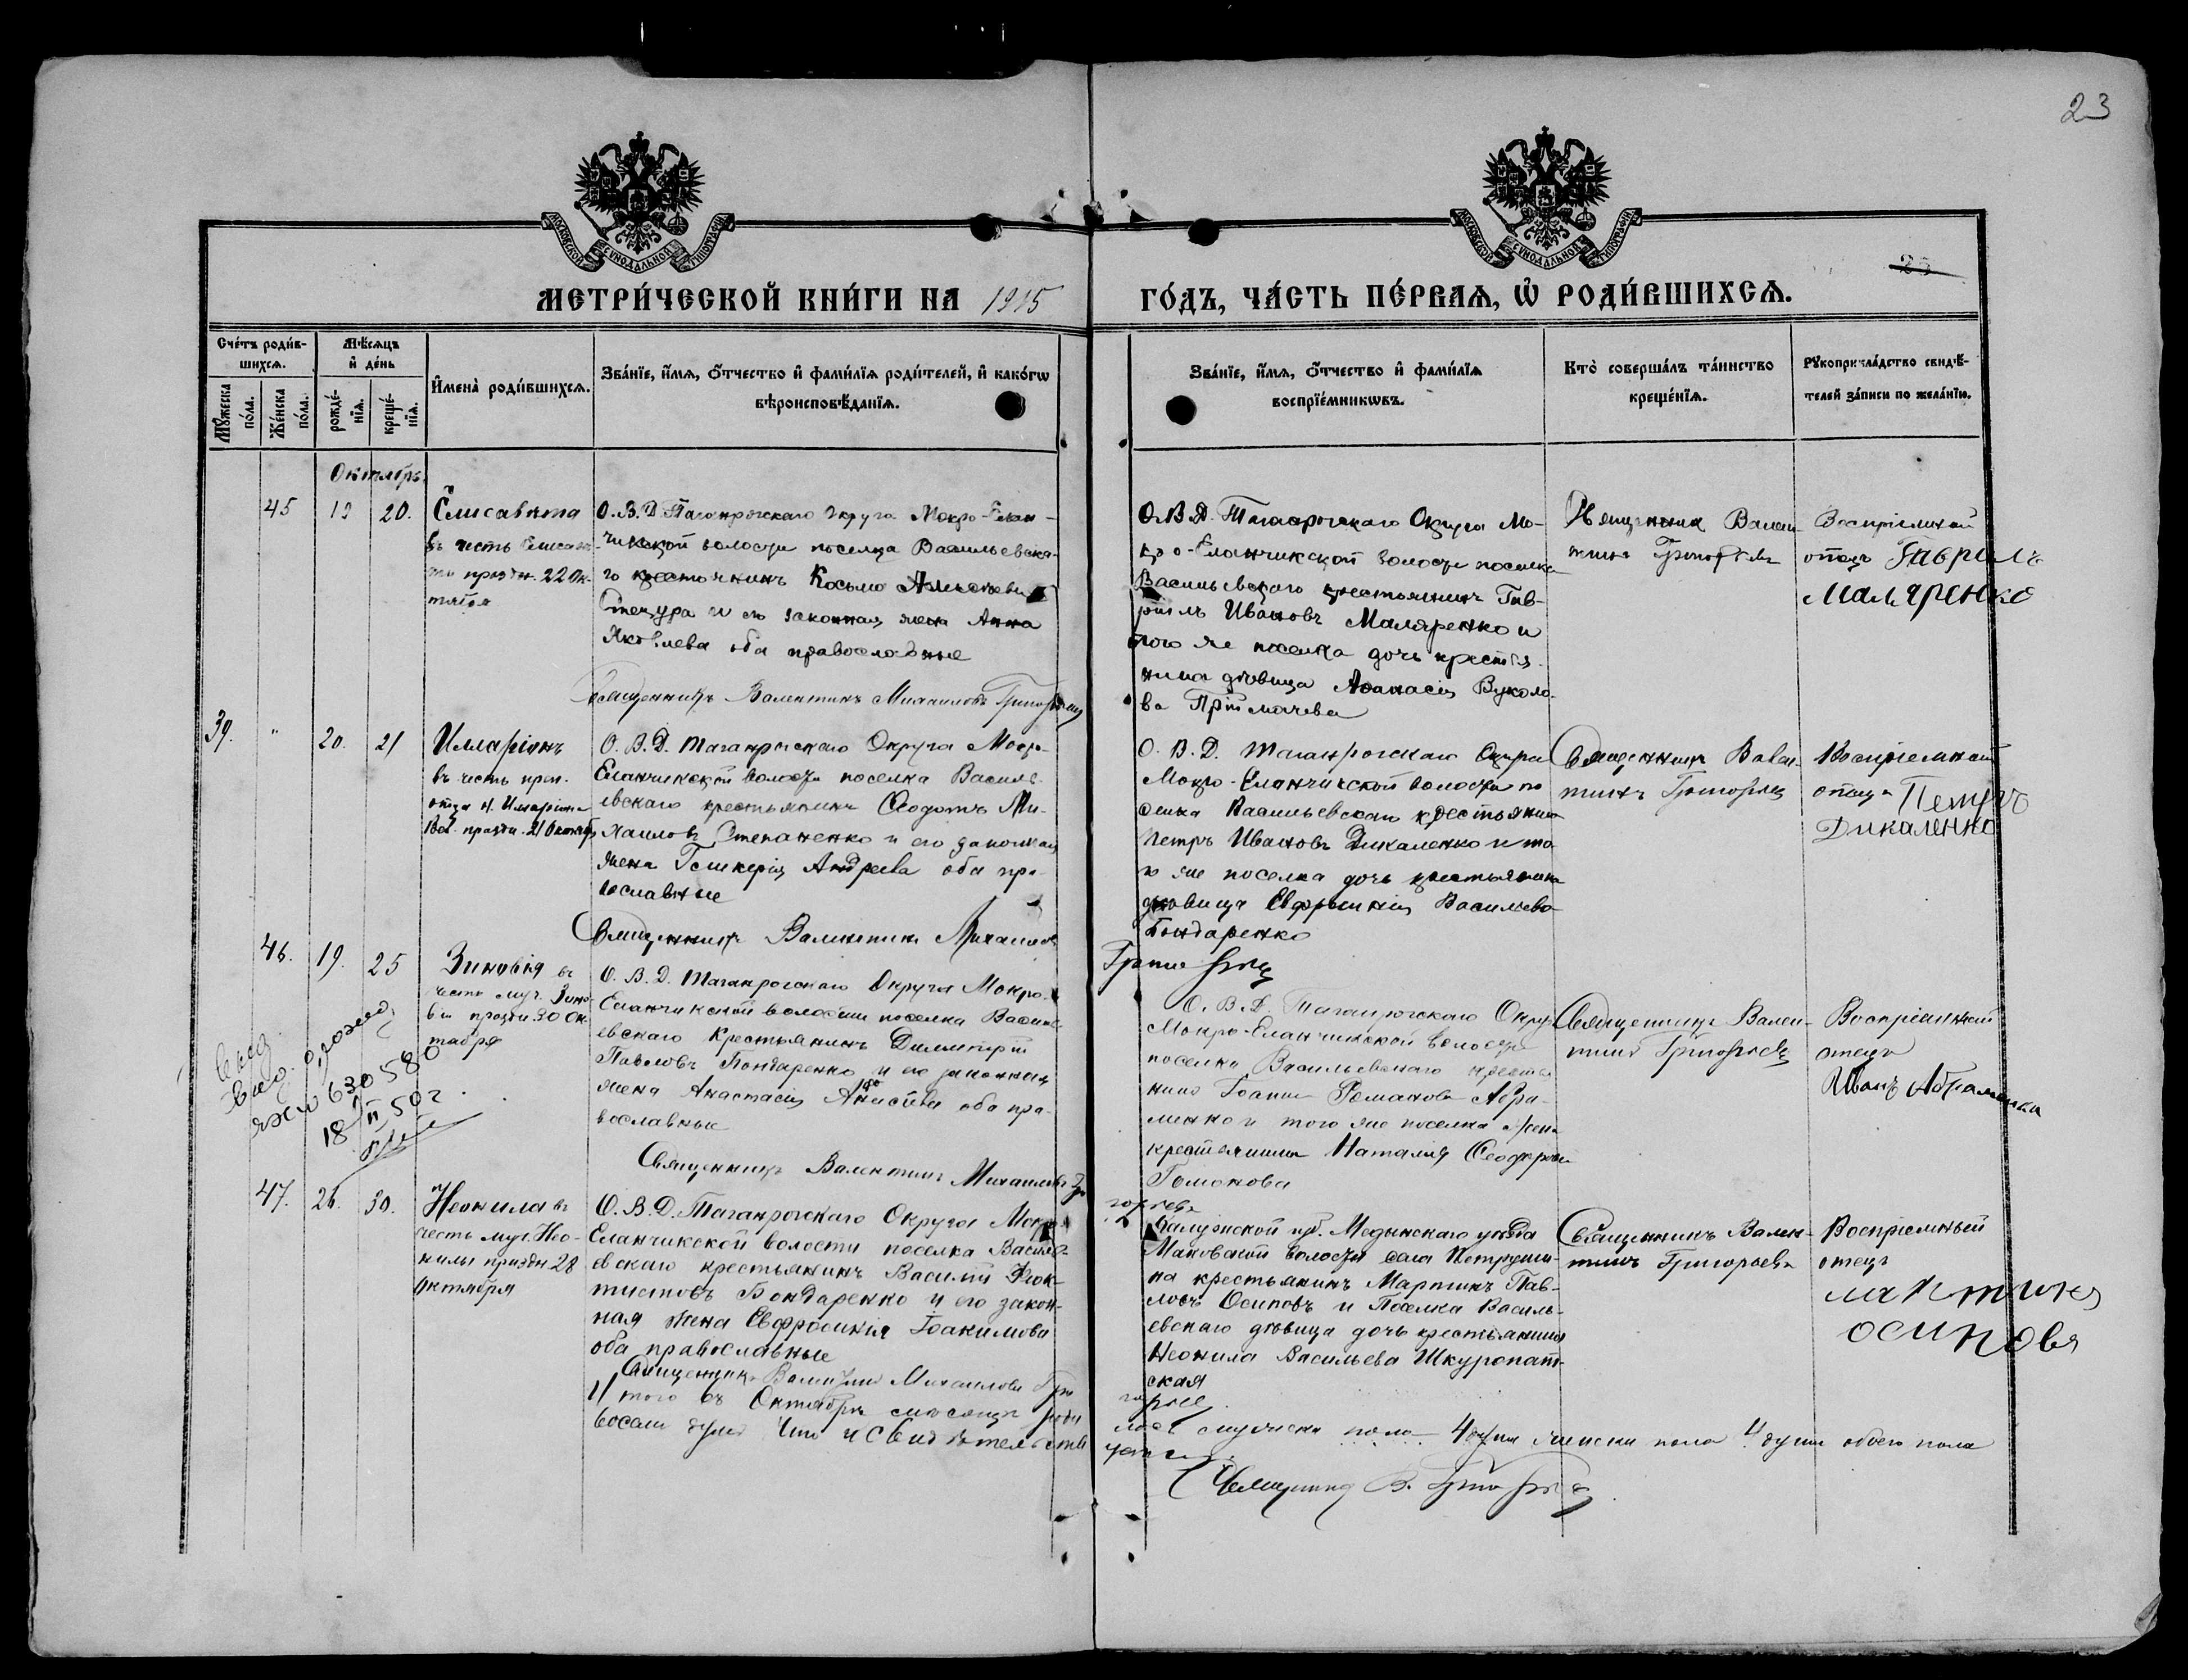 23
МОСКОВСКОЙ СУНОДАЛЬНОЙ ТИПОГРАФІИ
МОСКОВСКОЙ СУНОДАЛЬНОЙ ТИПОГРАФІИ
МЕТРИ́ЧЕСКОЙ КНИ́ГИ НА 1915
ГО́ДЪ, ЧА́СТЬ ПЕ́РВАѦ, Ѡ҆ РОДИ́ВШИХСѦ.
Сче́тъ роди́в-
шихсѧ.
Мꙋ́жеска по́ла.
Же́нска по́ла.
Мѣ́сѧцъ
и҆ де́нь
рожде́-нїѧ.
креще́-нїѧ.
И҆мена̀ роди́вшихсѧ.
Зва́нїе, и҆́мѧ, ѻ҆́тчество и҆ фами́лїѧ роди́телей, и҆ како́гѡ
вѣроисповѣ́данїѧ.
Зва́нїе, и҆́мѧ, ѻ҆́тчество и҆ фами́лїѧ
воспрїе́мникѡвъ.
Кто̀ соверша́лъ та́инство
креще́нїѧ.
Рꙋкоприкла́дство свидѣ́-
телей за́писи по жела́нїю.
Октябрь
45 19 20.
Елисавета
въ честь Елисаве-
ты праздн. 22 Ок-
тября
О. В. Д. Таганрогскаго Округа Мокро-Елан-
чикской волости поселка Васильевска-
го крестьянинъ Косьма
и его законная жена Анна
Яковлева оба православные
Священникъ Валентинъ Михаиловъ Григорьевъ
О. В. Д. Таганрогскаго Округа Мо-
кро-Еланчикской волости поселка
Васильевскаго крестьянинъ Гав-
рiилъ Ивановъ Маляренко и
того же поселка дочь крестья-
нина дѣвица Афанасiя Вуколо-
ва
Священникъ Вален-
тинъ Григорьевъ
Воспрiемный
отецъ Гаврилъ
Маляренко
39. " 20. 21
Илларiонъ
въ честь преп.
отца н. Иларiона
Вел. праздн. 21 Октябр.
О. В. Д. Таганрогскаго Округа Мокро-
Еланчикской волости поселка Василь-
евскаго крестьянинъ Ѳеодотъ Ми-
хаиловъ Степаненко и его законная
жена Гликерiя Андреева оба пра-
вославные
Священникъ Валентинъ Михаиловъ
Григорьевъ
О. В. Д. Таганрогскаго Округа
Мокро-Еланчикской волости по-
селка Васильевскаго крестьянинъ
Петръ Ивановъ Дикаленко и то-
го же поселка дочь крестьянина
дѣвица Евфросинiя Васильева
Бондаренко
Священникъ Вален-
тинъ Григорьевъ
Воспрiемный
отецъ Петръ
Дикаленко
46. 19. 25
Зиновiя въ
честь муч. Зино-
вiи праздн. 30 Ок-
тября
О. В. Д. Таганрогскаго Округа Мокро-
Еланчикской волости поселка Василь-
евскаго Крестьянинъ Димитрiй
Павловъ Бондаренко и его законная
жена Анастасiя оба пра-
вославные
Священникъ Валентинъ Михаиловъ Гри-
горьевъ
О. В. Д. Таганрогскаго Округа
Мокро-Еланчикской волости
поселка Васильевскаго крестья-
нинъ Iоаннъ Романовъ Абра-
менко и того же поселка жена
крестьянина Наталiя Ѳеодорова
Гомонова
Священникъ Вален-
тинъ Григорьевъ
Воспрiемный
отецъ
Иванъ Абраменко
630580
18/II 50 г.
47. 26. 30.
Неонила въ
честь муч. Нео-
нилы праздн 28
Октября
О. В. Д. Таганрогскаго Округа Мокро-
Еланчикской волости поселка Василь-
евскаго крестьянинъ Василiй Ѳеок-
тистовъ Бондаренко и его закон-
ная жена Евфросинiя Iоакимова
оба православные
Священникъ Валентинъ Михаиловъ Гри-
горьев
Калужской губ. Медынскаго уѣзда
Маковской волости села
крестьянинъ Мартинъ Пав-
ловъ Осиповъ и Поселка Василь-
евскаго дѣвица дочь крестьянина
Неонила Васильева Шкуропат-
ская
Священникъ Вален-
тинъ Григорьевъ
Воспрiемный
отецъ
Мартинъ
Осиповъ
Итого въ Октябрѣ мѣсяцѣ роди-
лось мужеска пола 4 души женска пола 4 души обоего пола
восемь душъ Что и свидѣтельствуемъ
Священникъ В. Григорьевъ